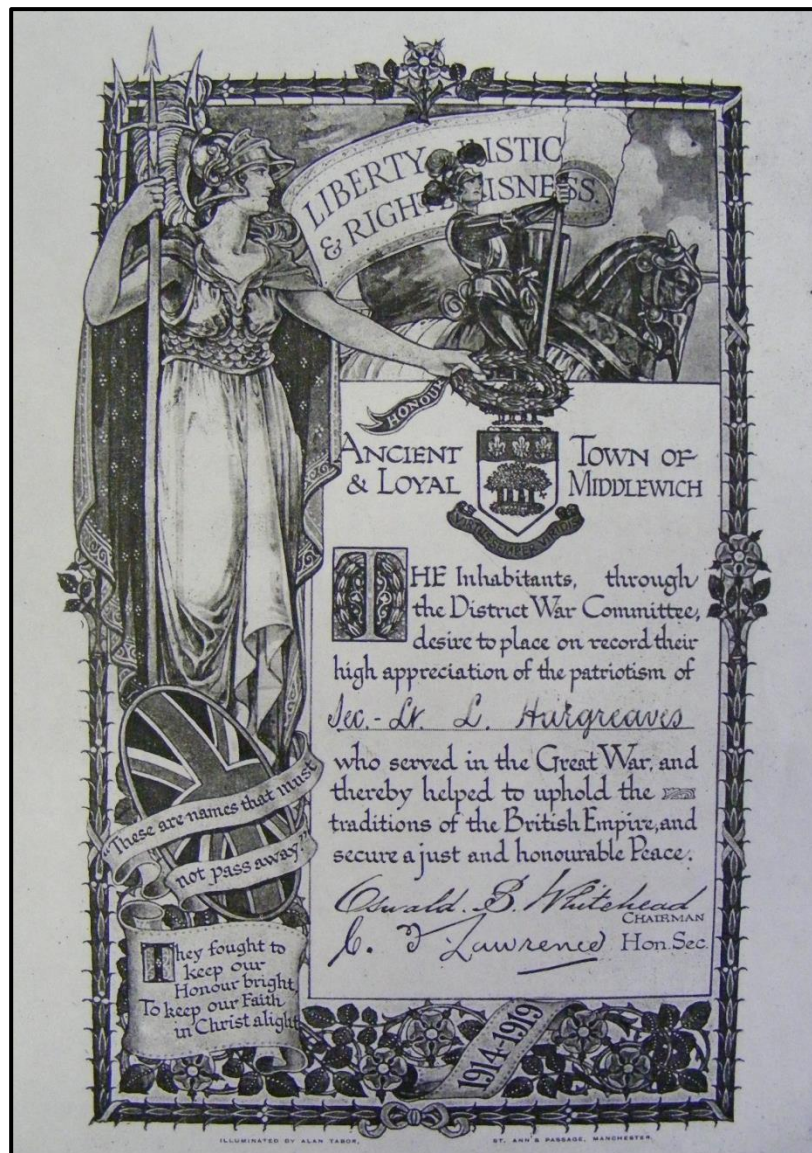 LIBERTY JUSTIC
& RIGHT ISNESS.
HONOUR
ANCIENT TOWN OF
& LOYAL MIDDLEWICH
SEMPER VIRIDIS
THE Inhabitants, through
the District War Committee,
desire to place on record their
high appreciation of the patriotism of
Sec.-Lt. L. Hargreaves
who served in the Great War, and
thereby helped to uphold the
traditions of the British Empire, and
secure a just and honourable Peace.
Oswald. B. Whitehead
CHAIRMAN
C. F Lawrence Hon. Sec.
"These are names that must
not pass away."
They fought to
keep our
Honour bright,
To keep our Faith
in Christ alight
1914-1919
ILLUMINATED BY ALAN TABOR, ST. ANN'S PASSAGE, MANCHESTER.